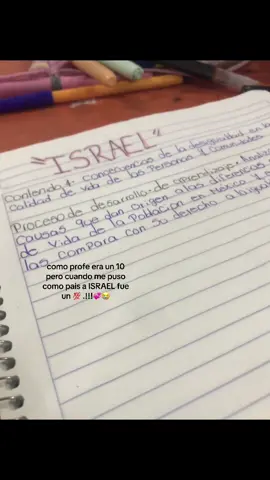 "ISRAEL"
Contenido 1: consecuencias de la desigualdad en la
calidad de vida de las Personas y comunidades.
Proceso de desarrollo de aprendizaje: Analiza
causas que dan origen a las diferencias
de vida de la Población en México y
las compara con su derecho a la
como profe era un 10
pero cuando me puso
como pais a ISRAEL fue
un 💯 .!!!💞😂